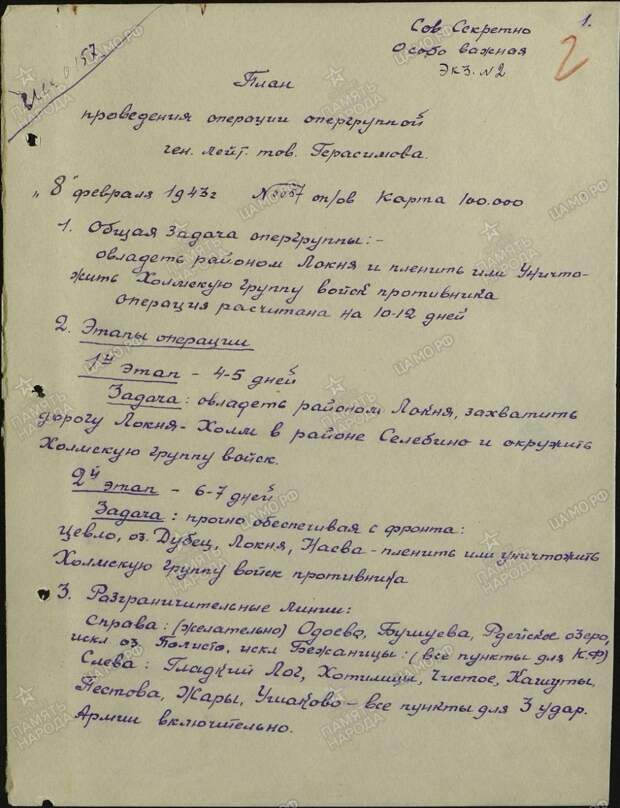 1.
Сов. Секретно
Особо важная
Экз. №2
2
План
проведения операции опергруппой
ген. лейт. тов. Герасимова.
"8" февраля 1943г № 0057 оп/ов Карта 100.000
1. Общая Задача опергруппы:-
овладеть районом Локня и пленить или Уничто-
жить Холмскую группу войск противника
Операция расчитана на 10-12 дней
2. Этапы операции
1й этап - 4-5 дней
Задача: овладеть районом Локня, захватить
дорогу Локня-Холм в районе Селебино и окружить
Холмскую группу войск.
2й этап - 6-7 дней
Задача: прочно обеспечивая с фронта:
Цевло, оз. Дубец, Локня, Насва - пленить или уничтожить
Холмскую группу войск противника
3. Разграничительные линии:
Справа: (желательно) Одоево, Бушуева, Рдейское озеро,
искл оз. Полисто, искл Бежаницы: (все пункты для К.Ф)
Слева: Гладкий Лог, Хотилицы, Чистое, Качуты,
Пестова, Жары, Ушаково - все пункты для 3 удар.
Армии включительно.
ПАМЯТЬ НАРОДА
ЦАМО.РФ